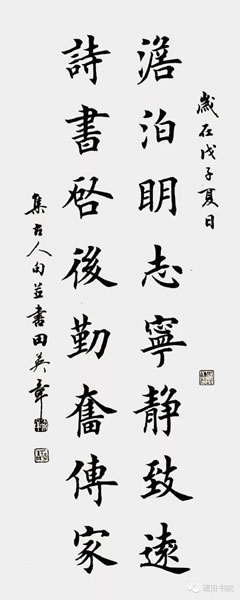 歲在戊子夏日
澹泊明志寧静致遠
詩書啓後勤奮傳家
集古人句並書田英章
硬田书院